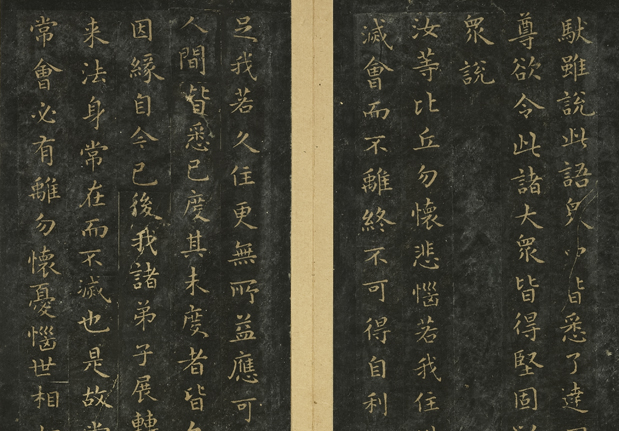 馱雖說此語眾中皆悉了達
尊欲令此諸大眾皆得堅固
眾說
汝等比丘勿懷悲惱若我住
滅會而不離終不可得自利
足我若久住更無所益應可
人間皆悉已度其未度者皆
因緣自今已後我諸弟子展轉
来法身常在而不滅也是故當
常會必有離勿懷憂惱世相